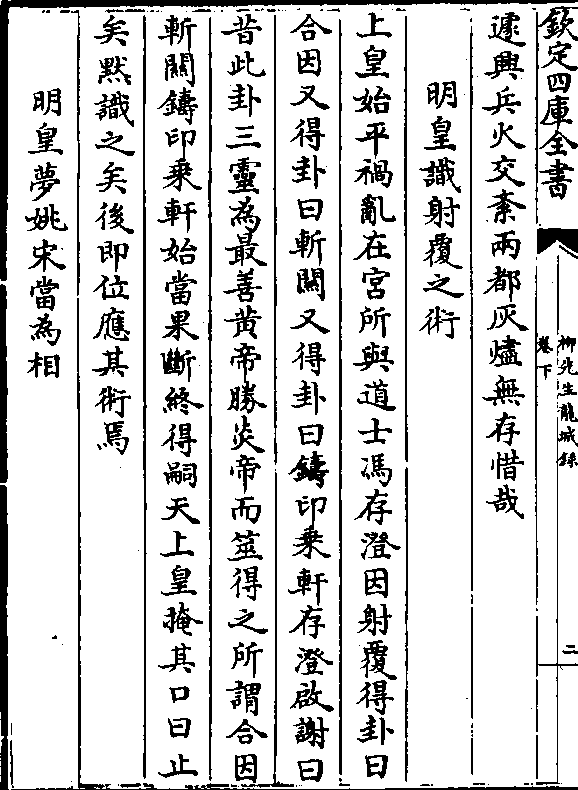 欽定四庫全書
柳先生龍城錄
卷下
二
遽興兵火交紊兩都灰燼無存惜哉
明皇識射覆之術
上皇始平禍亂在宮所與道士馮存澄因射覆得卦曰
合因又得卦曰斬關又得卦曰鑄印乗軒存澄啟謝曰
昔此卦三靈為最善黄帝勝炎帝而筮得之所謂合因
斬關鑄印乗軒始當果斷終得嗣天上皇掩其口曰止
矣黙識之矣後即位應其術焉
明皇夢姚宋當為相